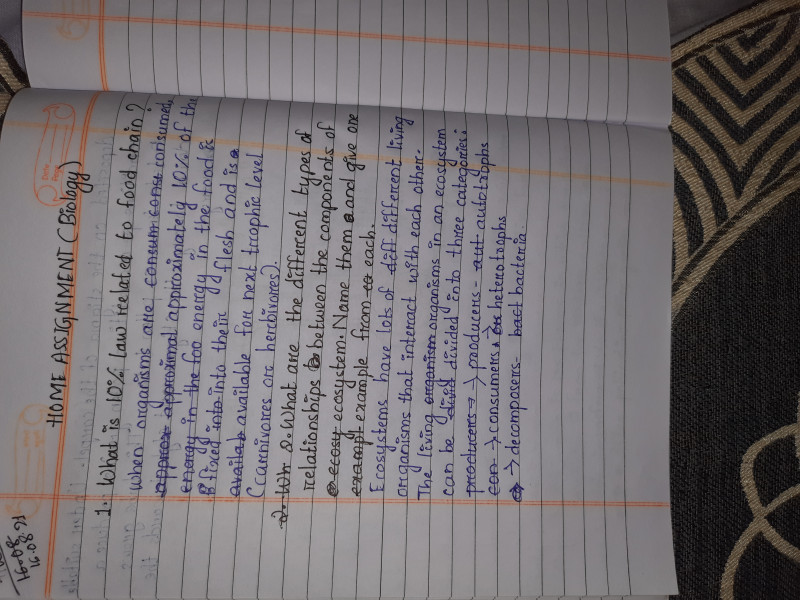 16.08.21
16.08.21
HOME ASSIGNMENT (Biology)
1. What is 10% law related to food chain?
When organisms are consum consu consumed,
approx approximal approximately 10% of the
energy in the foo energy in the food is
fixed into into their flesh and is
availab available for next trophic level
(carnivores or herbivores).
2. Wh 2. What are the different types of
relationships between the components of
ecosy ecosystem. Name them and give one
exampl example from each.
Ecosystems have lots of diff different living
organisms that interact with each other.
The living organism organisms in an ecosystem
can be divid divided into three categories:
producers → → producers - aut autotrophs
con → consumers - heterotrophs
→ decomposers - bact bacteria.